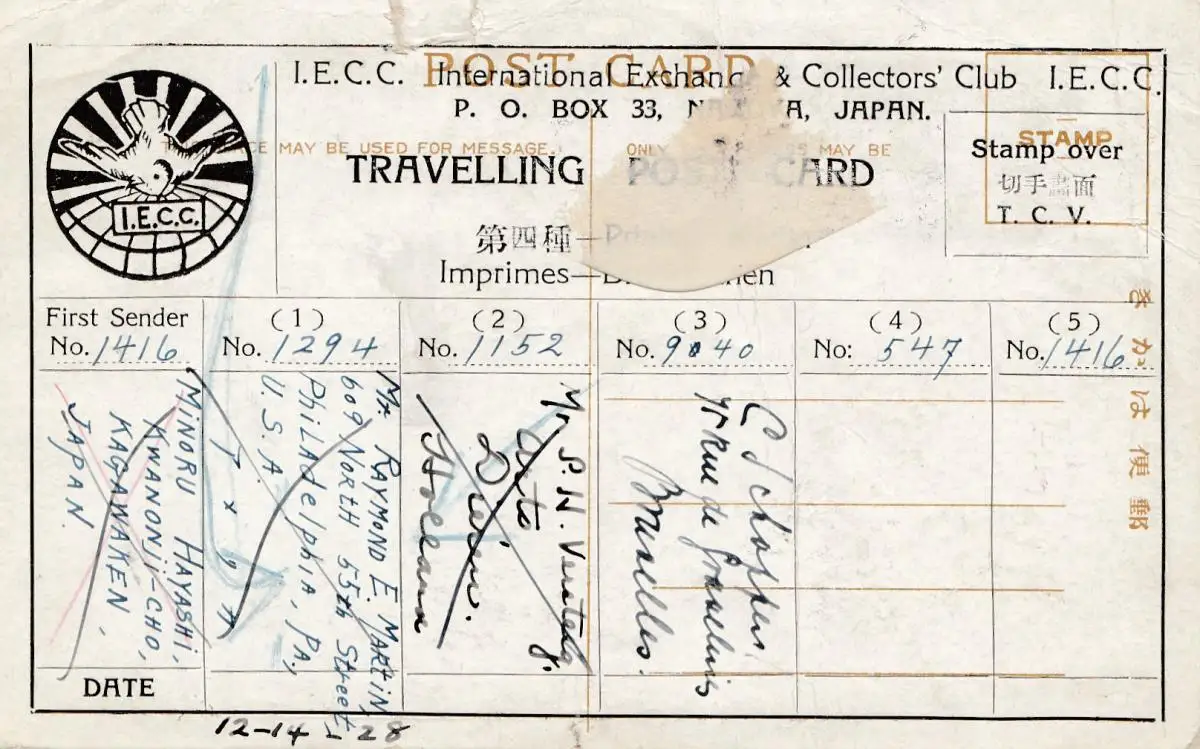 I.E.C.C. International Exchange & Collectors' Club I.E.C.C.
POST CARD
P. O. BOX 33, JAPAN.
MAY BE USED FOR MESSAGE. ONLY MAY BE
TRAVELLING POST CARD
STAMP
Stamp over
切手畫面
T. C. V.
I.E.C.C.
第四種—
Imprimes—
First Sender
No. 1416
(1)
No. 1294
(2)
No. 1152
(3)
No. 9040
(4)
No: 547
(5)
No. 1416
きかは便郵
MINORU HAYASHI,
KWANONJI-CHO,
KAGAWAKEN,
JAPAN
Mr. RAYMOND E. MARTIN
609 NORTH 55th Street,
PhiLAdeLphiA, PA,
U. S. A
Mr. S. H.
Holland
rue de
Bruxelles.
DATE
12-14-28